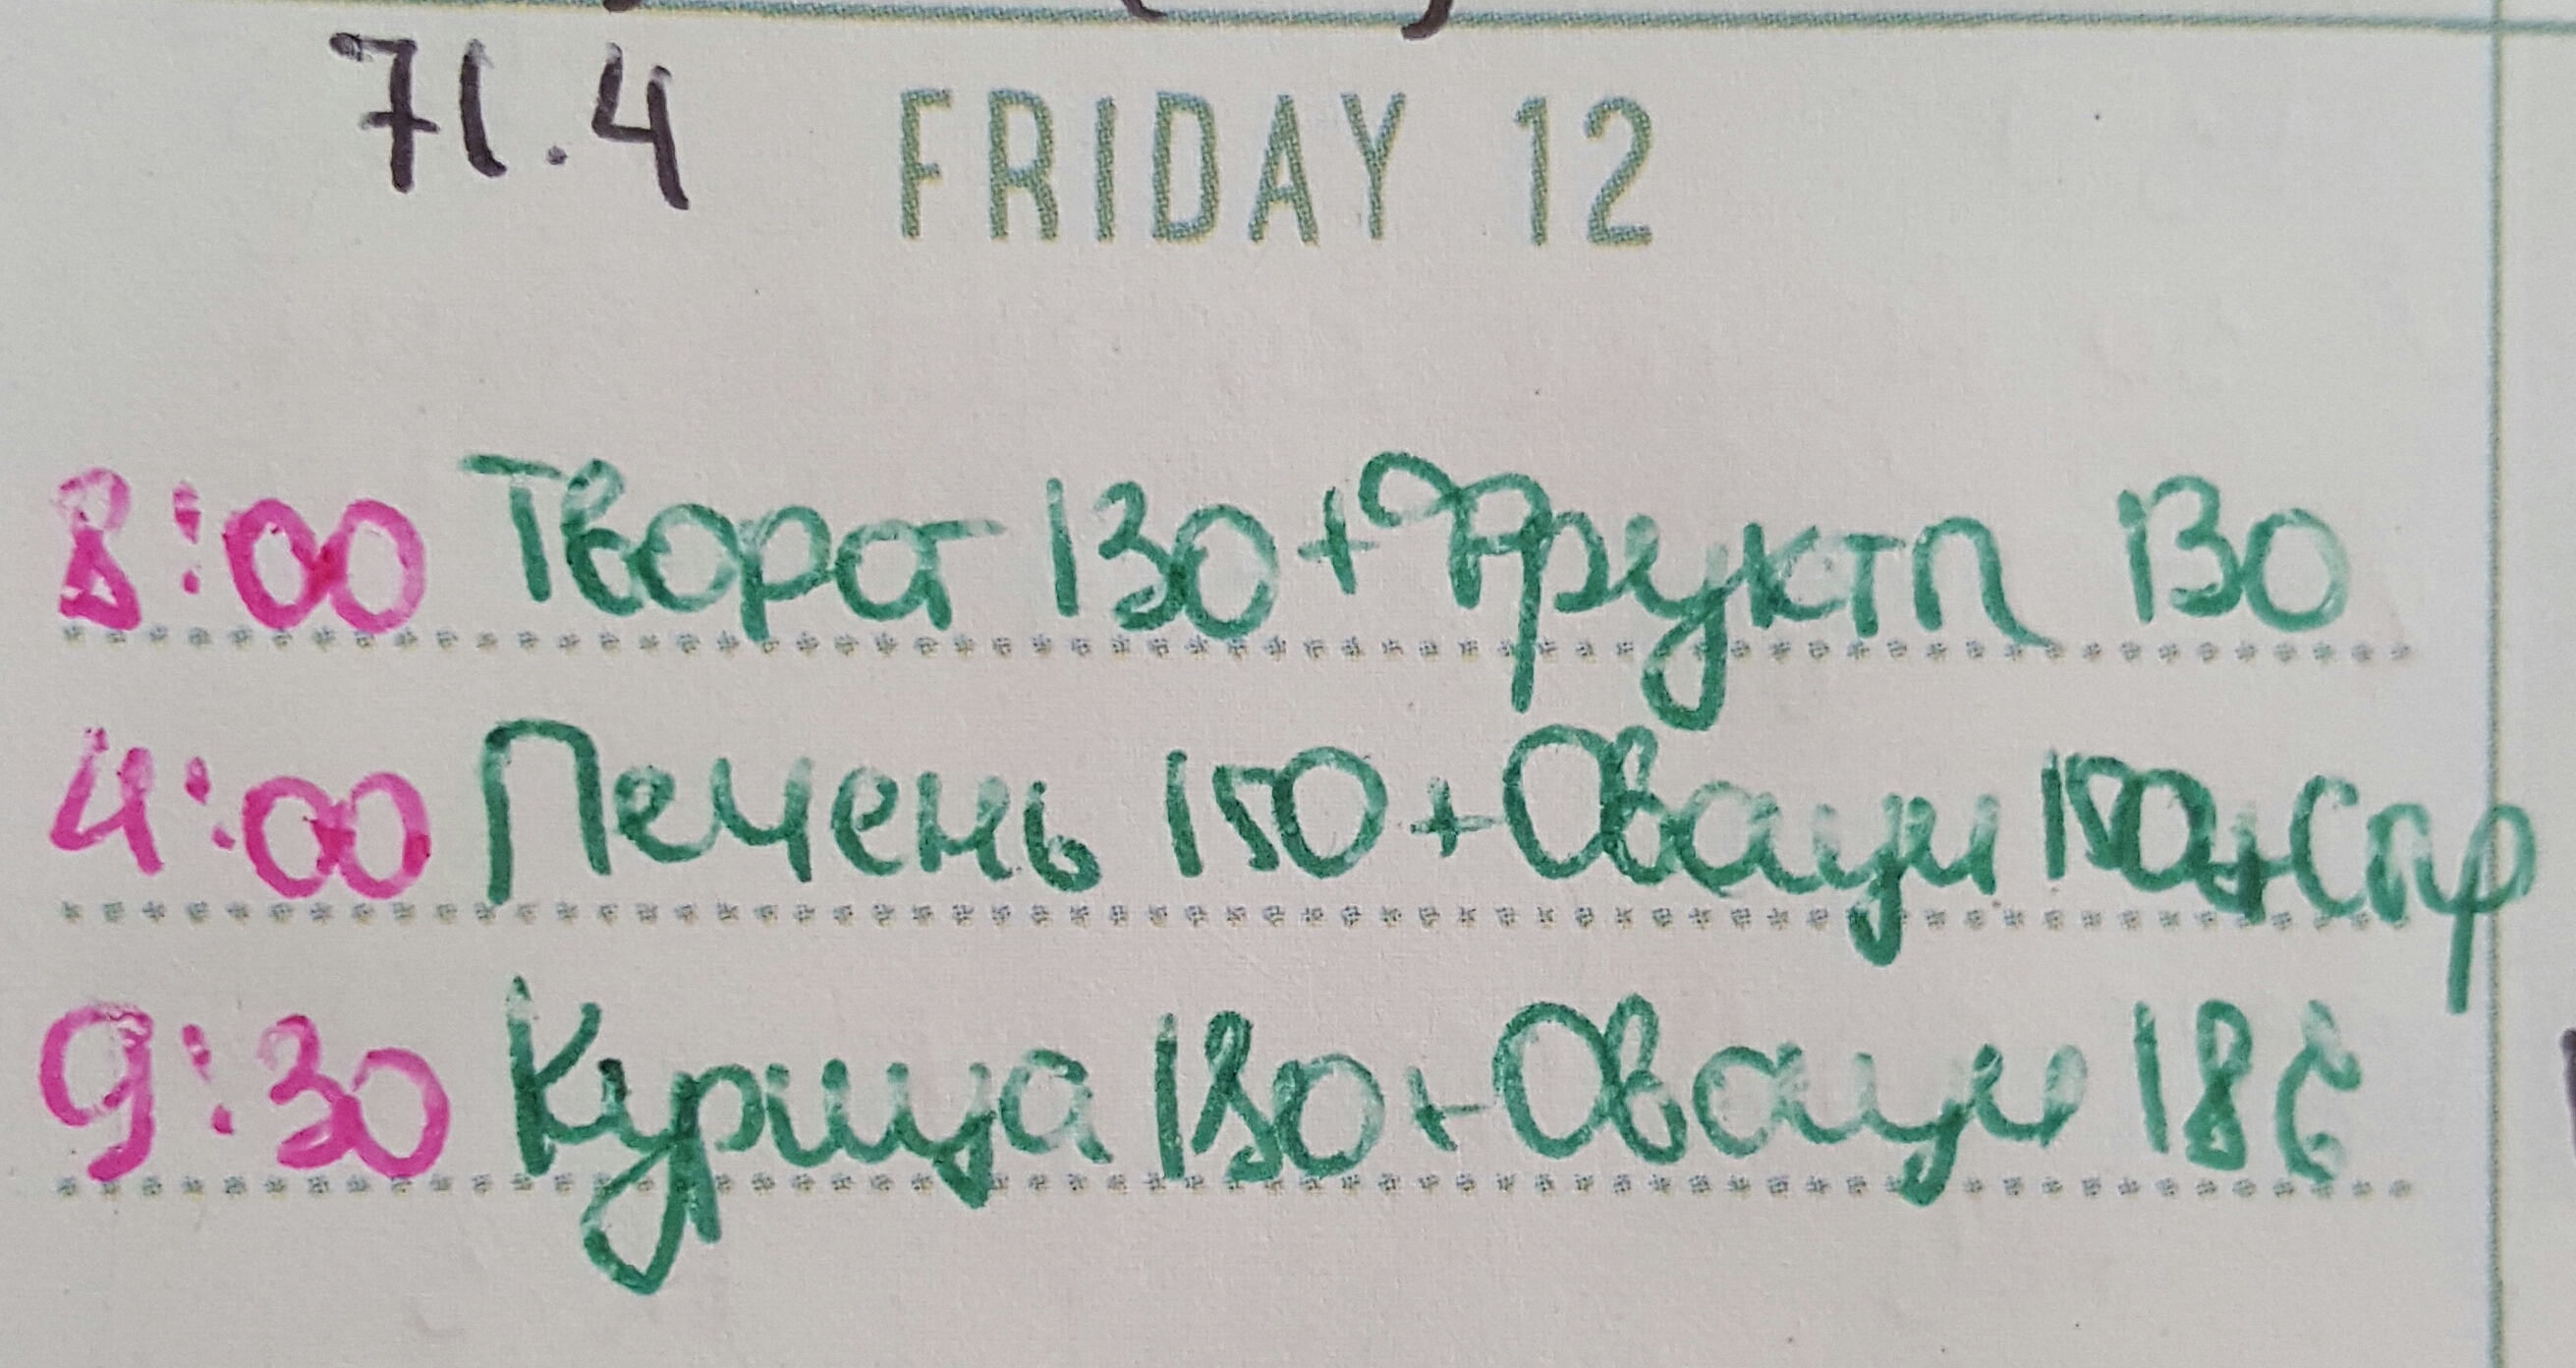 71.4 FRIDAY 12
8:00 Творог 130 + Фрукты 130
4:00 Печень 150 + Овощи 150 + Сыр
9:30 Курица 180 + Овощи